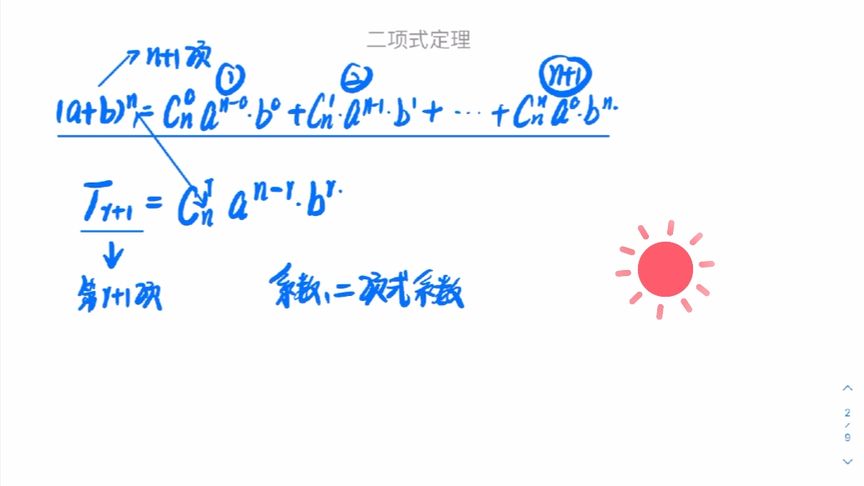 二项式定理
n+1项
① ② n+1
(a+b)ⁿ = Cₙ⁰ aⁿ⁻⁰·b⁰ + Cₙ¹·aⁿ⁻¹·b¹ + ··· + Cₙⁿ a⁰·bⁿ.
Tᵣ₊₁ = Cₙʳ aⁿ⁻ʳ·bʳ.
第r+1项
系数、二项式系数
2/9